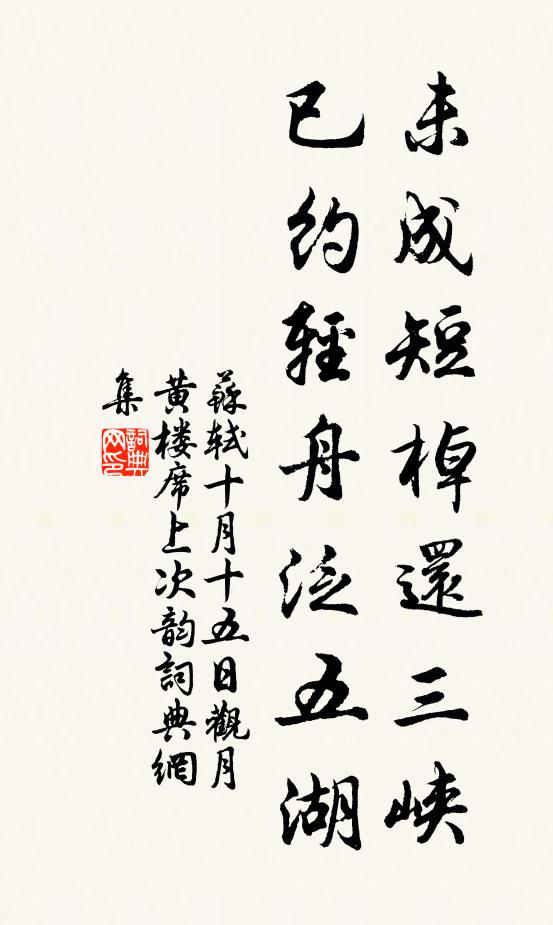 未成短棹還三峽
已約輕舟泛五湖
蘇軾十月十五日觀月
黄楼席上次韵詞典網
集
詞典网印